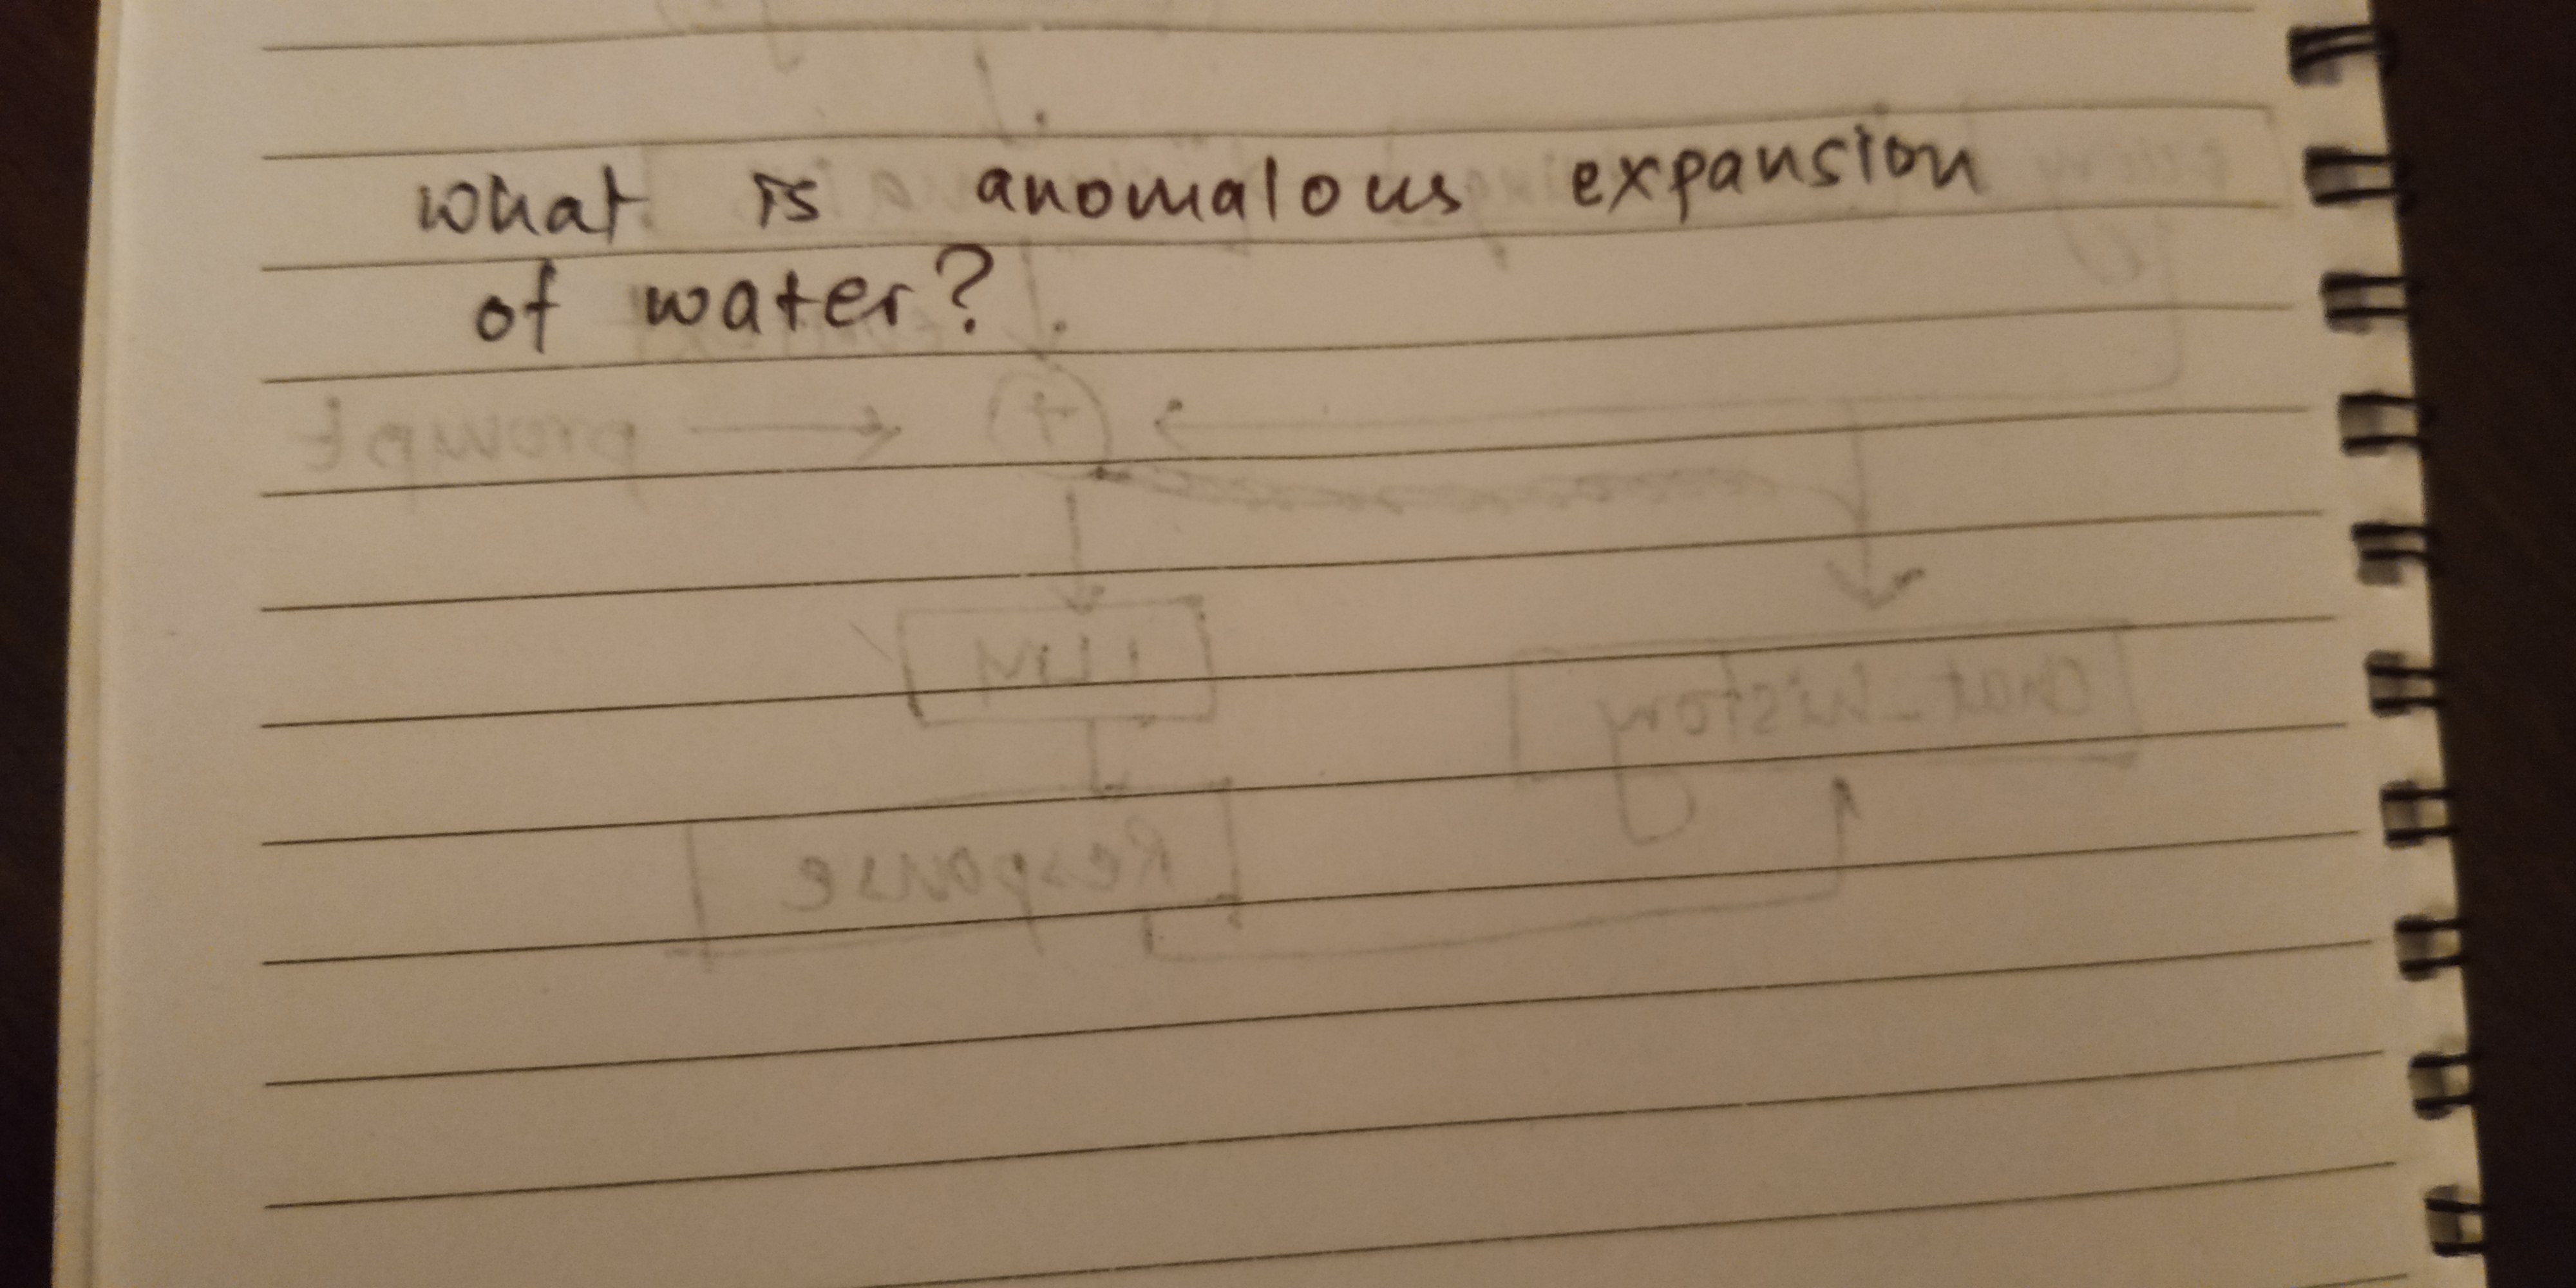 what is anomalous expansion
of water?